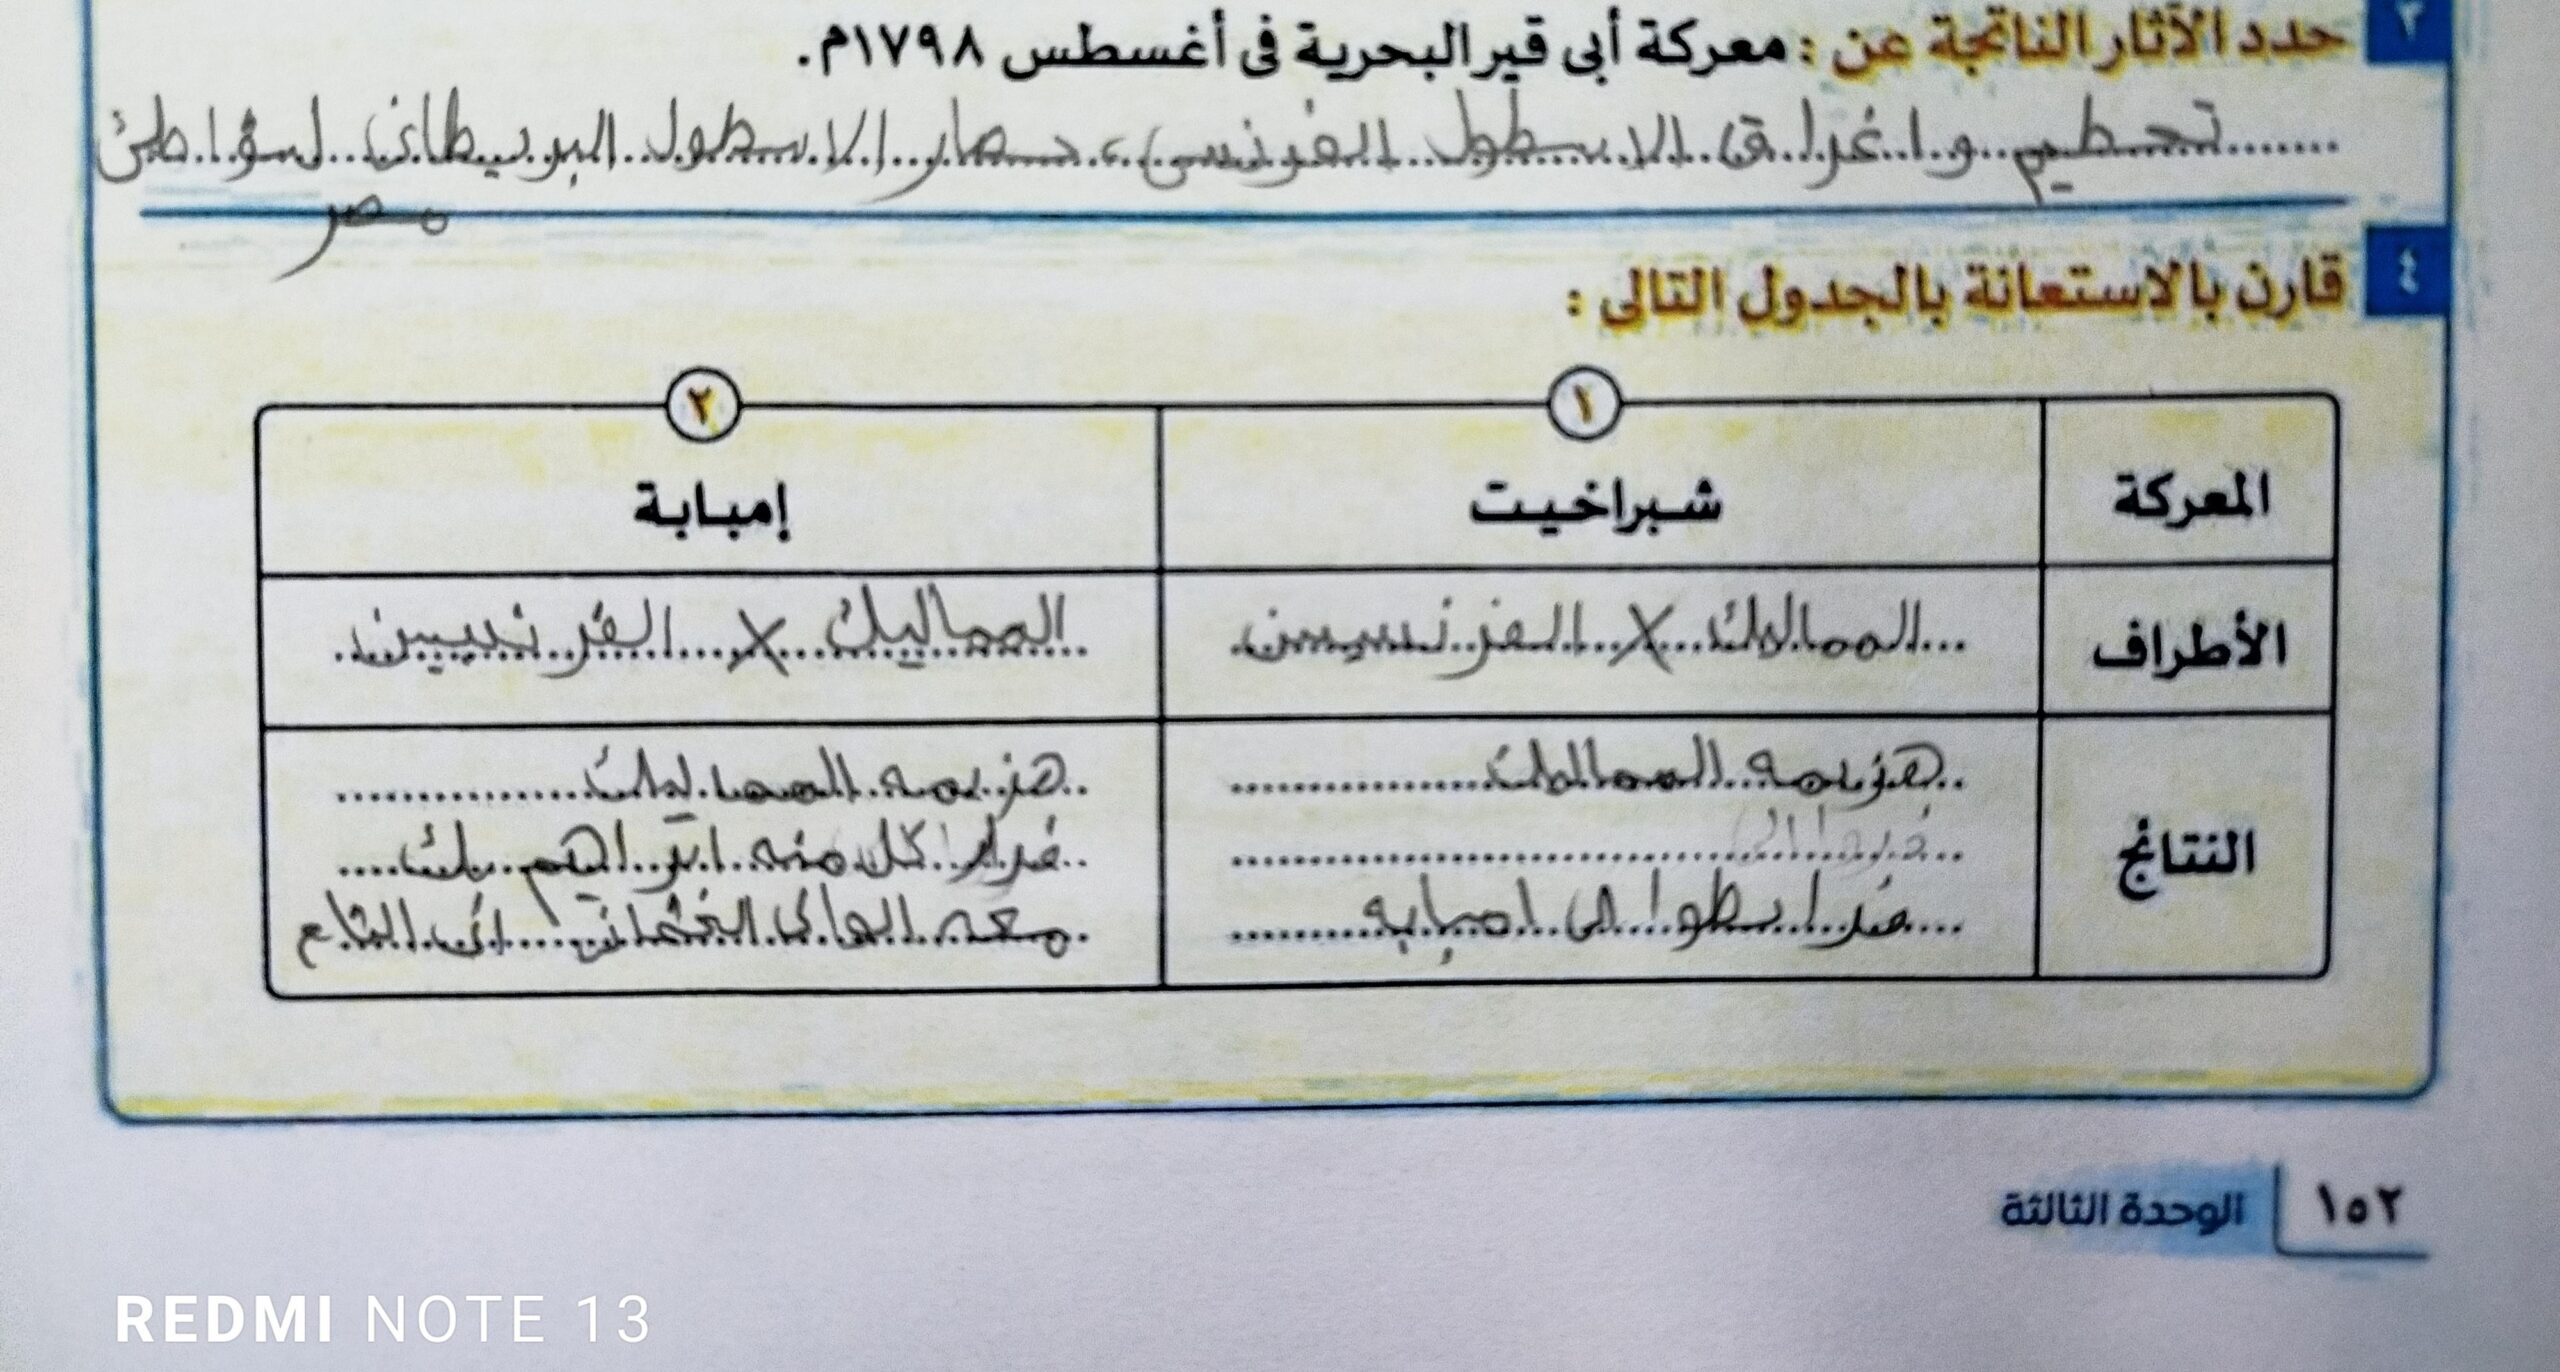 ٣
حدد الآثار الناتجة عن : معركة أبى قير البحرية فى أغسطس ١٧٩٨م.
تحطيم واغراق الاسطول الفرنسى، حصار الاسطول البريطانى لشواطئ
مصر
٤
قارن بالاستعانة بالجدول التالى :
١ ٢
المعركة شبراخيت إمبابة
الأطراف المماليك X الفرنسيين المماليك X الفرنسيين
النتائج هزيمه المماليك هزيمه المماليك
فرار كل من ابراهيم بك
الى امبابه معه الوالى العثمانى الى الشام
١٥٢ الوحدة الثالثة
REDMI NOTE 13